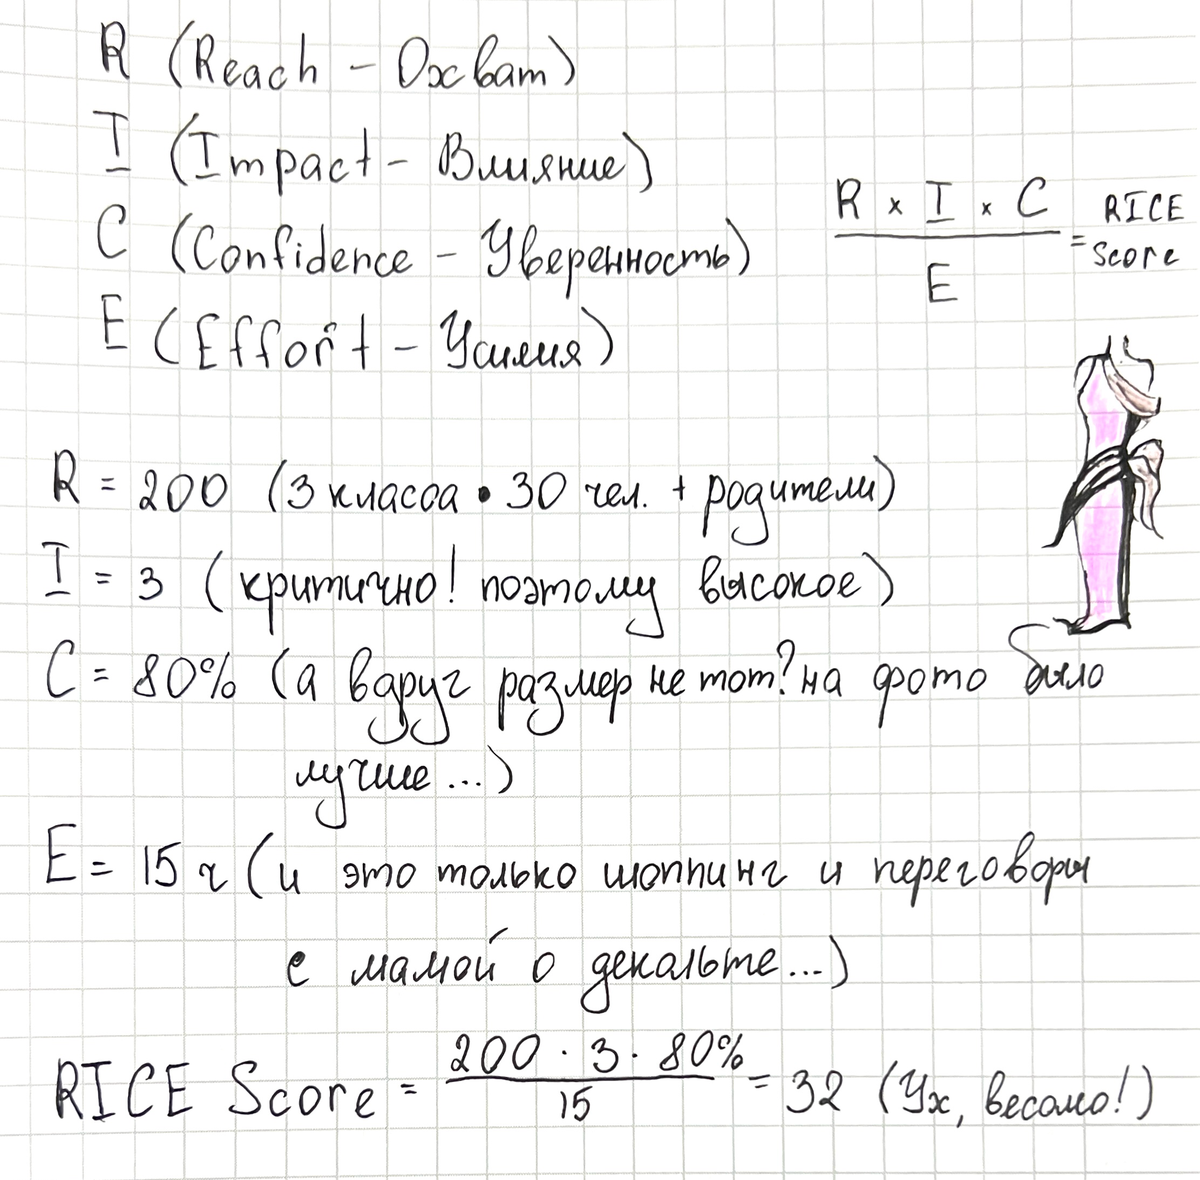 R (Reach - Охват)
I (Impact - Влияние)
C (Confidence - Уверенность)
E (Effort - Усилия)
R × I × C
E
= RICE Score
R = 200 (3 класса • 30 чел. + родители)
I = 3 (критично! поэтому высокое)
C = 80% (а вдруг размер не тот? на фото было
лучше...)
E = 15 ч (и это только шоппинг и переговоры
с мамой о декальте...)
RICE Score = 200 · 3 · 80% / 15 = 32 (Ух, весомо!)